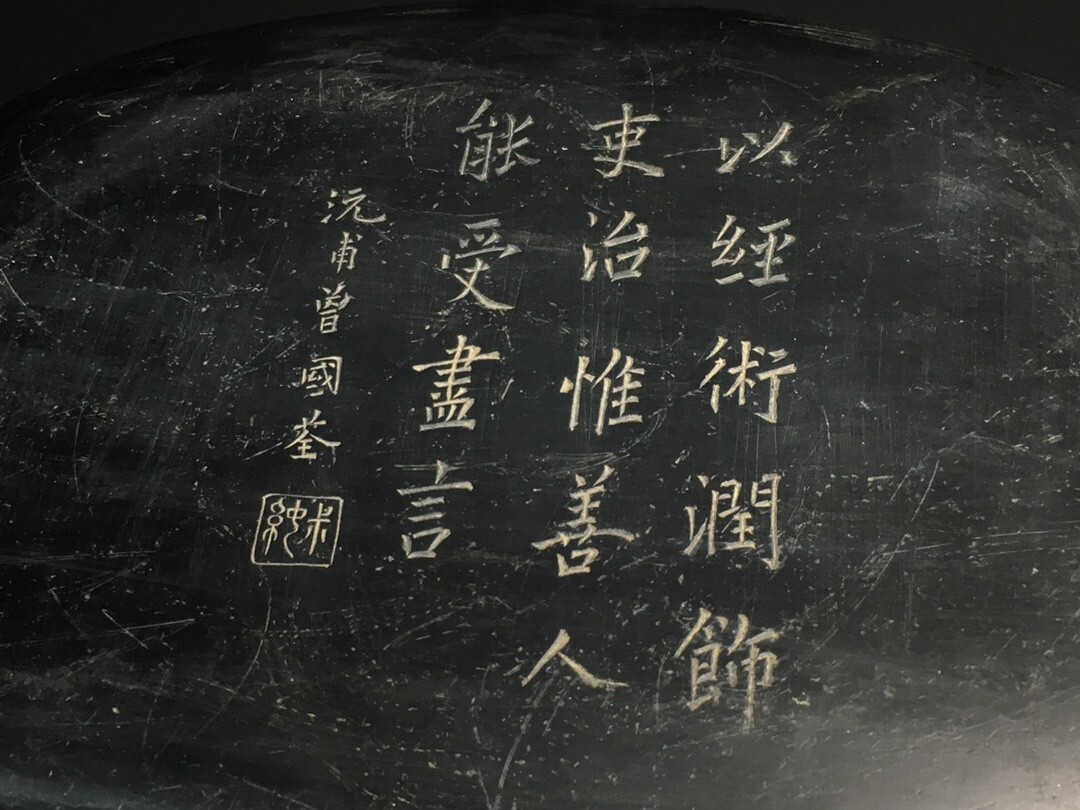 以經術潤飾
吏治惟善人
能受盡言
沅甫曾國荃